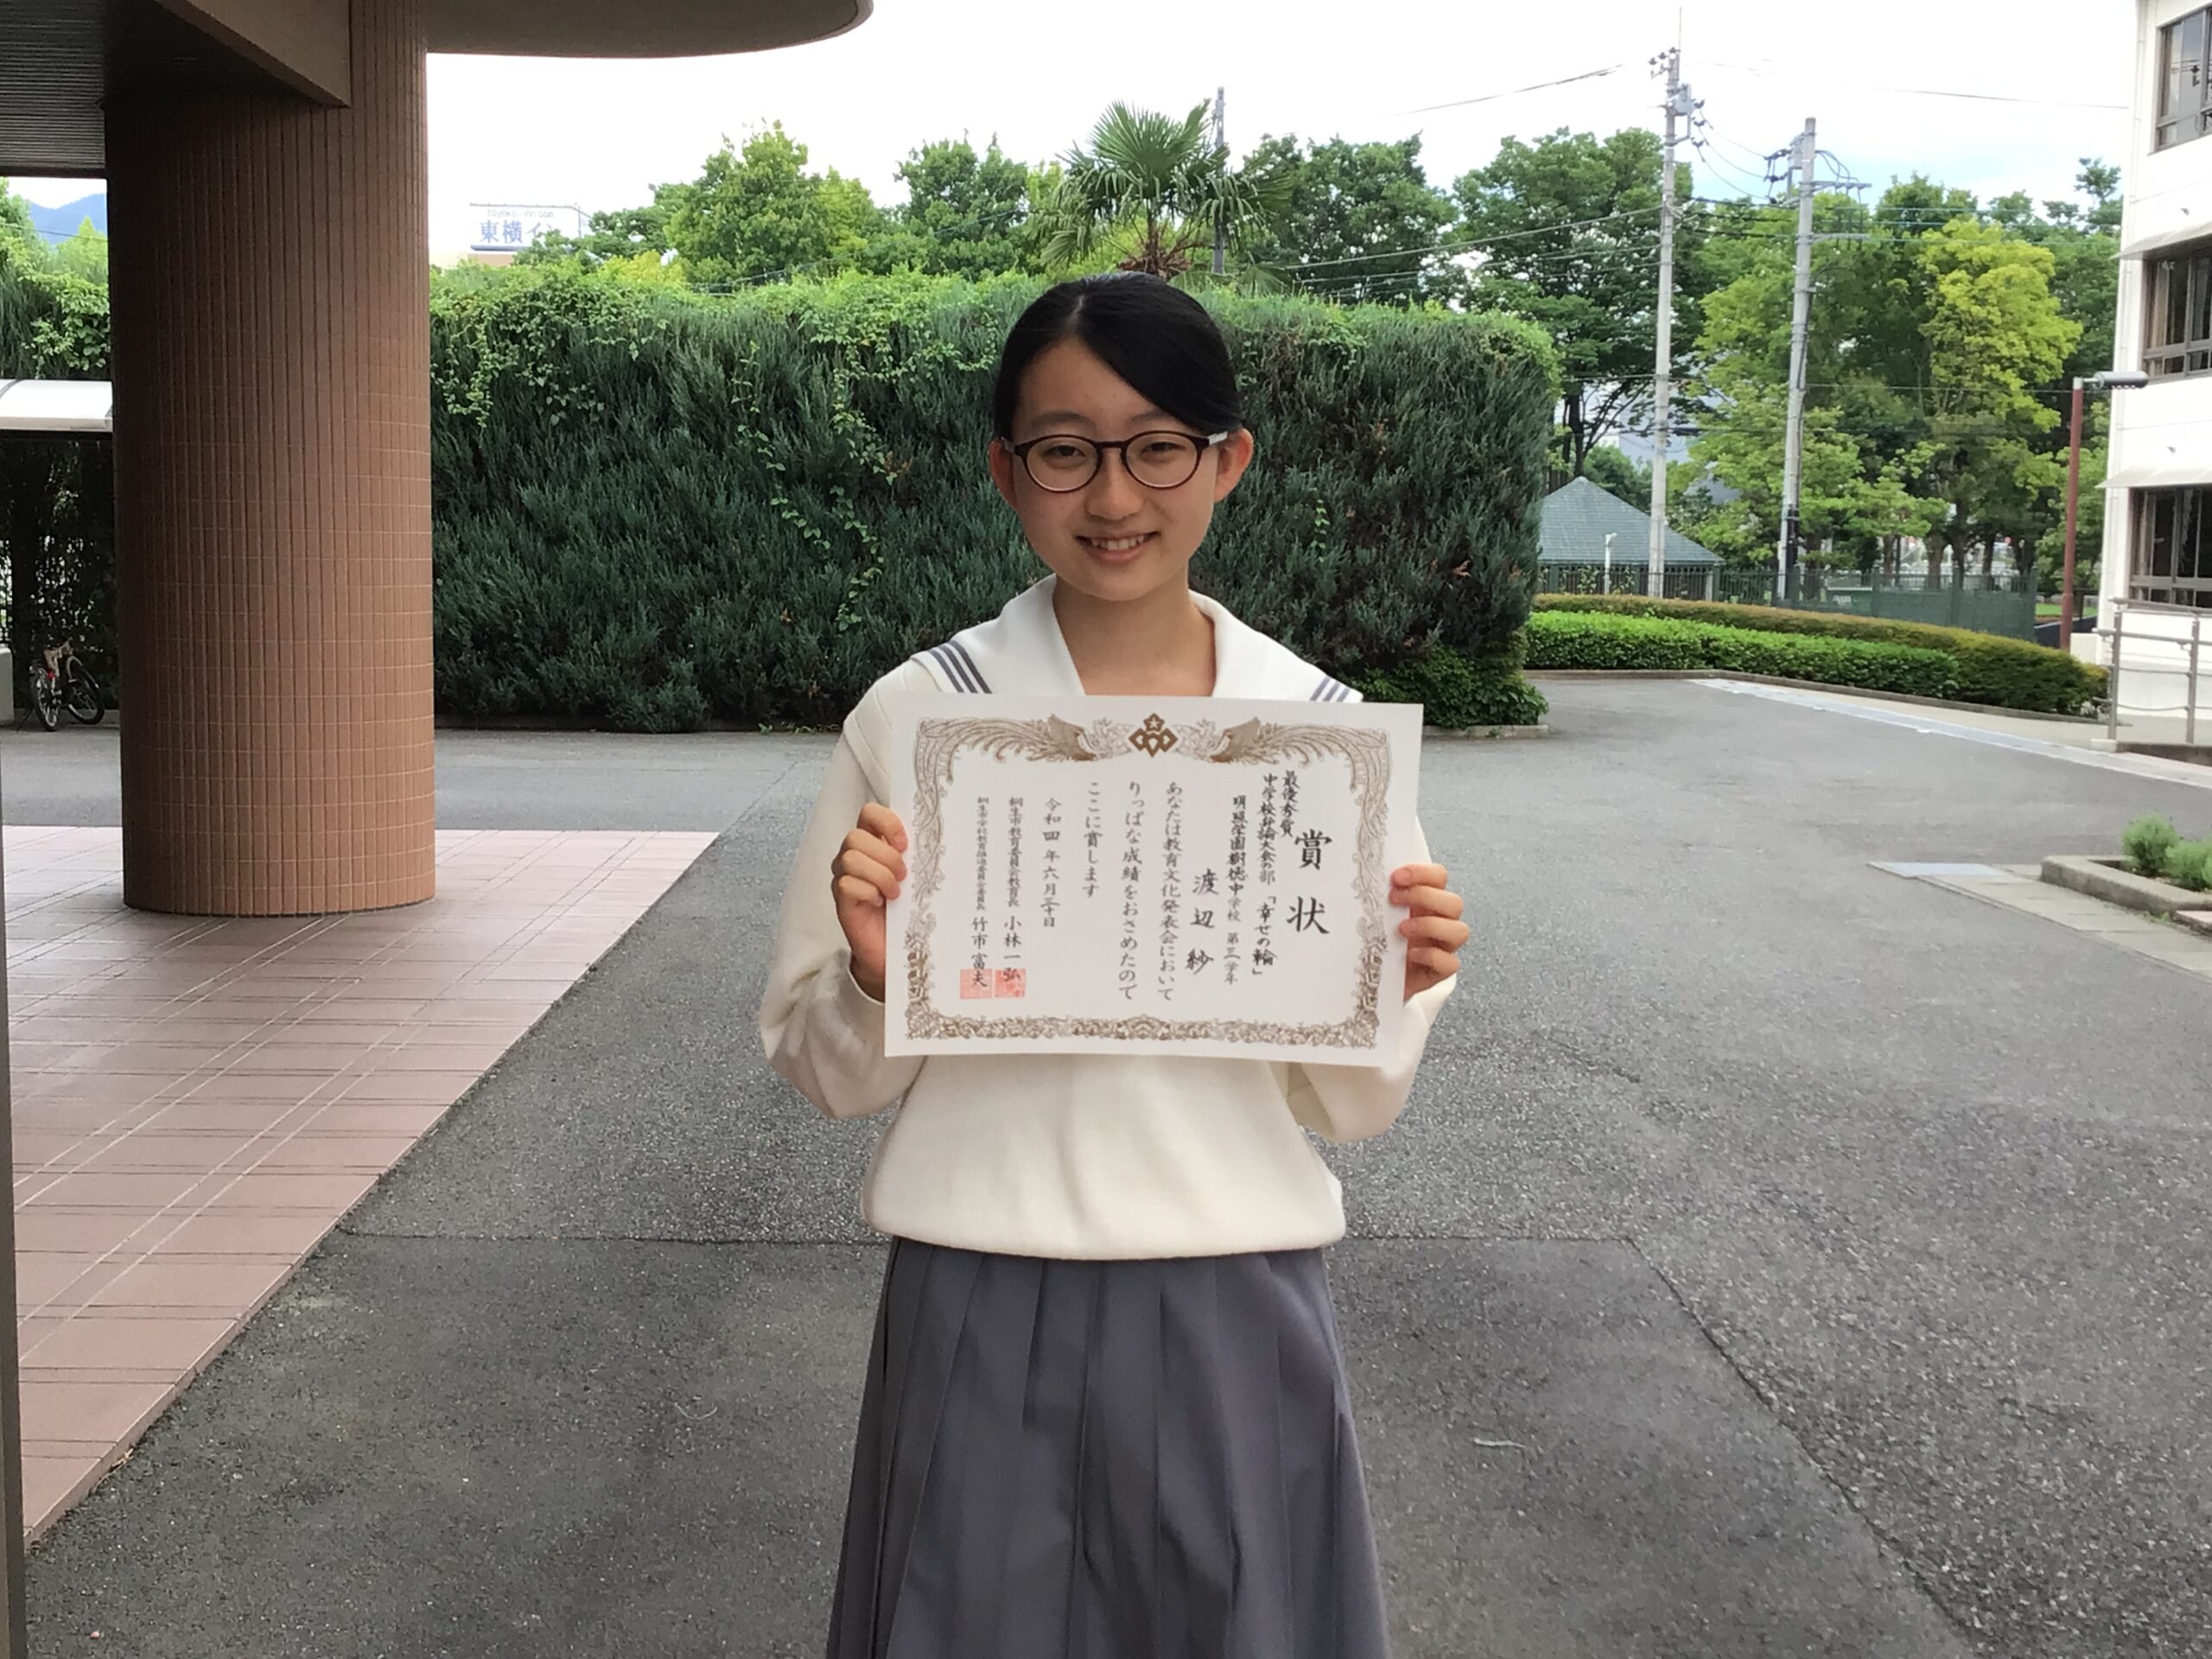 toyoko-inn.com
東横イ
賞状
最優秀賞
中学校弁論大会の部 「幸せの輪」
明照学園樹徳中学校 第三学年
渡辺 紗
あなたは教育文化発表会において
りっぱな成績をおさめたので
ここに賞します
令和四年六月三十日
桐生市教育委員会教育長 小林一弘
桐生市学校教育推進委員会委員長 竹市富夫